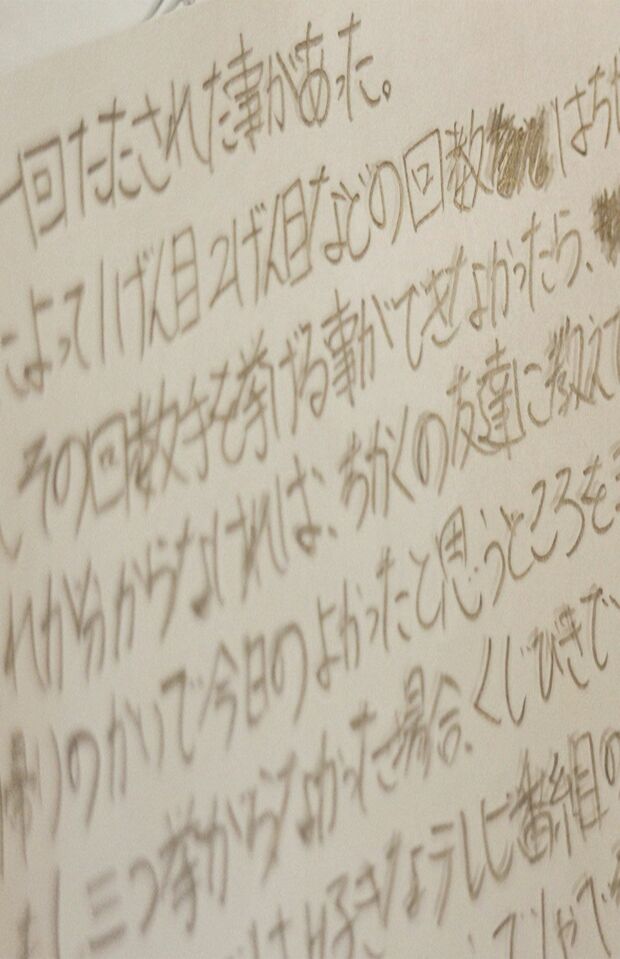 一回たたされた事があった。
よって1げん目2げん目などの回数はち
その回数手を挙げる事ができなかったら、
れが分からなければ、ちかくの友達に教えて
りのかいで今日のよかったと思うところを
三つ挙がらなかった場合、くじびきで
好きなテレビ番組の